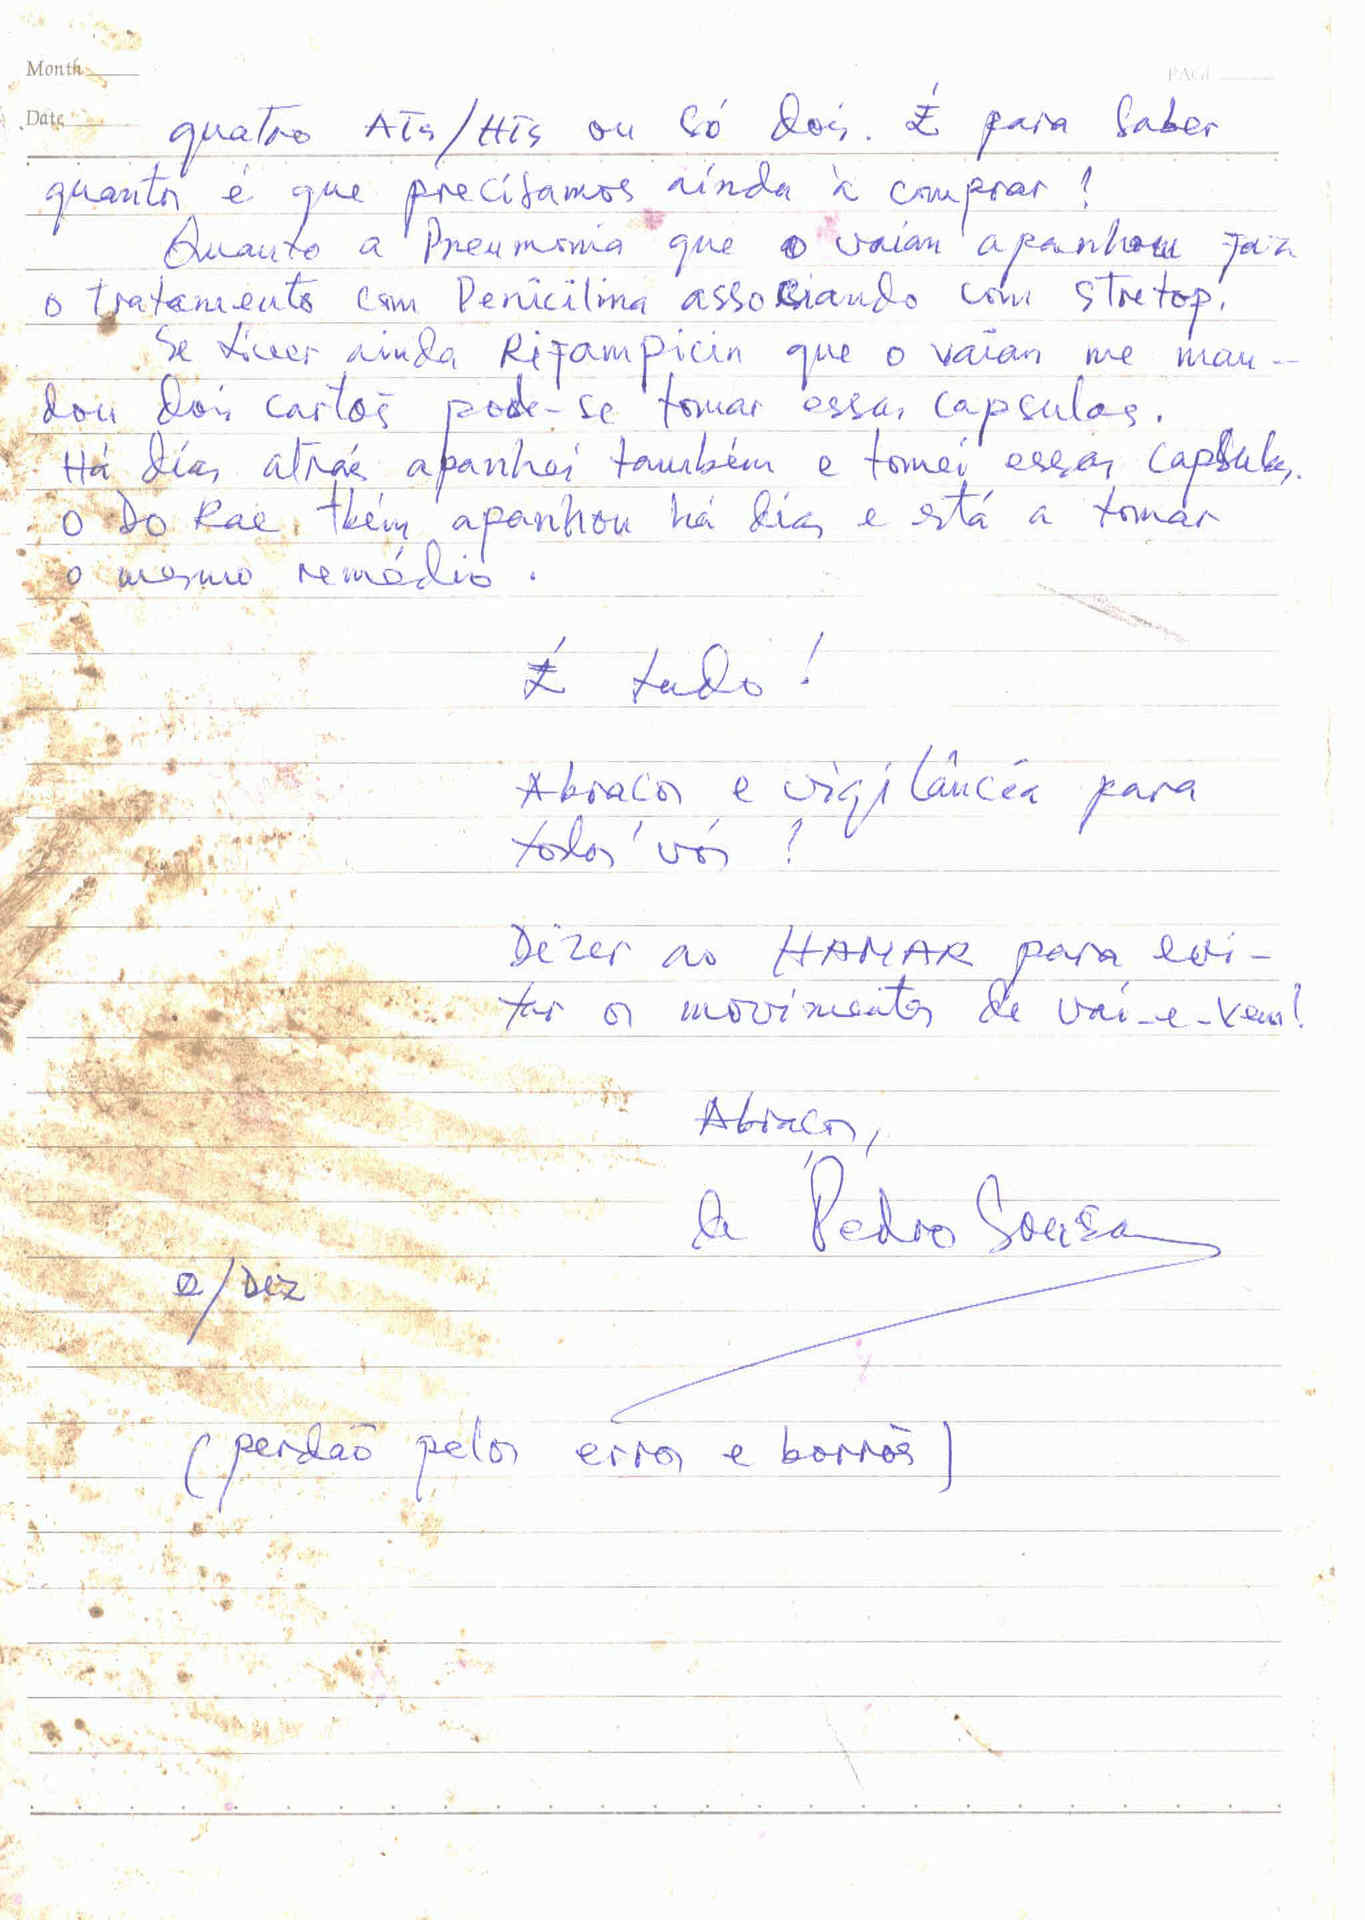 Month
PAGE
Date
quatro ATs/HTs ou só dois. É para saber
quantos é que precisamos ainda à comprar!
Quanto a Pneumonia que o vaian apanhou faz
o tratamento com Penicilina associando com stretop.
Se tiver ainda Rifampicin que o vaian me man-
dou dois cartoẽs pode-se tomar essas capsulas.
Há dias atrás apanhei também e tomei essas capsulas.
O Do Rae tbém apanhou há dias e está a tomar
o mesmo remédio.
É tudo!
Abraços e vigilância para
todos vós!
Dizer ao HAMAR para evi-
tar os movimentos de vai-e-vem!
Abraços,
de Pedro Sousa
/Dez
(perdaõ pelos erros e borrõs)